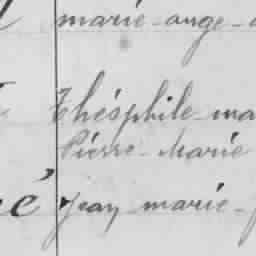 marie-ange-
Théophile-ma
Pierre-Marie
é Jean-marie-